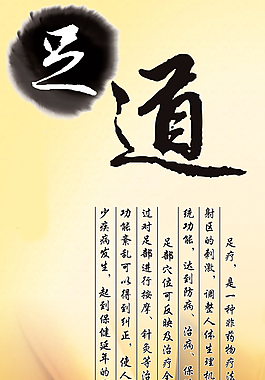 足
道
足疗，是一种非药物疗法
射区的刺激，调整人体生理机
统功能，达到防病、治病、保
足部穴位可反映及治疗全
过对足部进行按摩、针灸等治
功能紊乱可以得到纠正，使人
少疾病发生，起到保健延年的